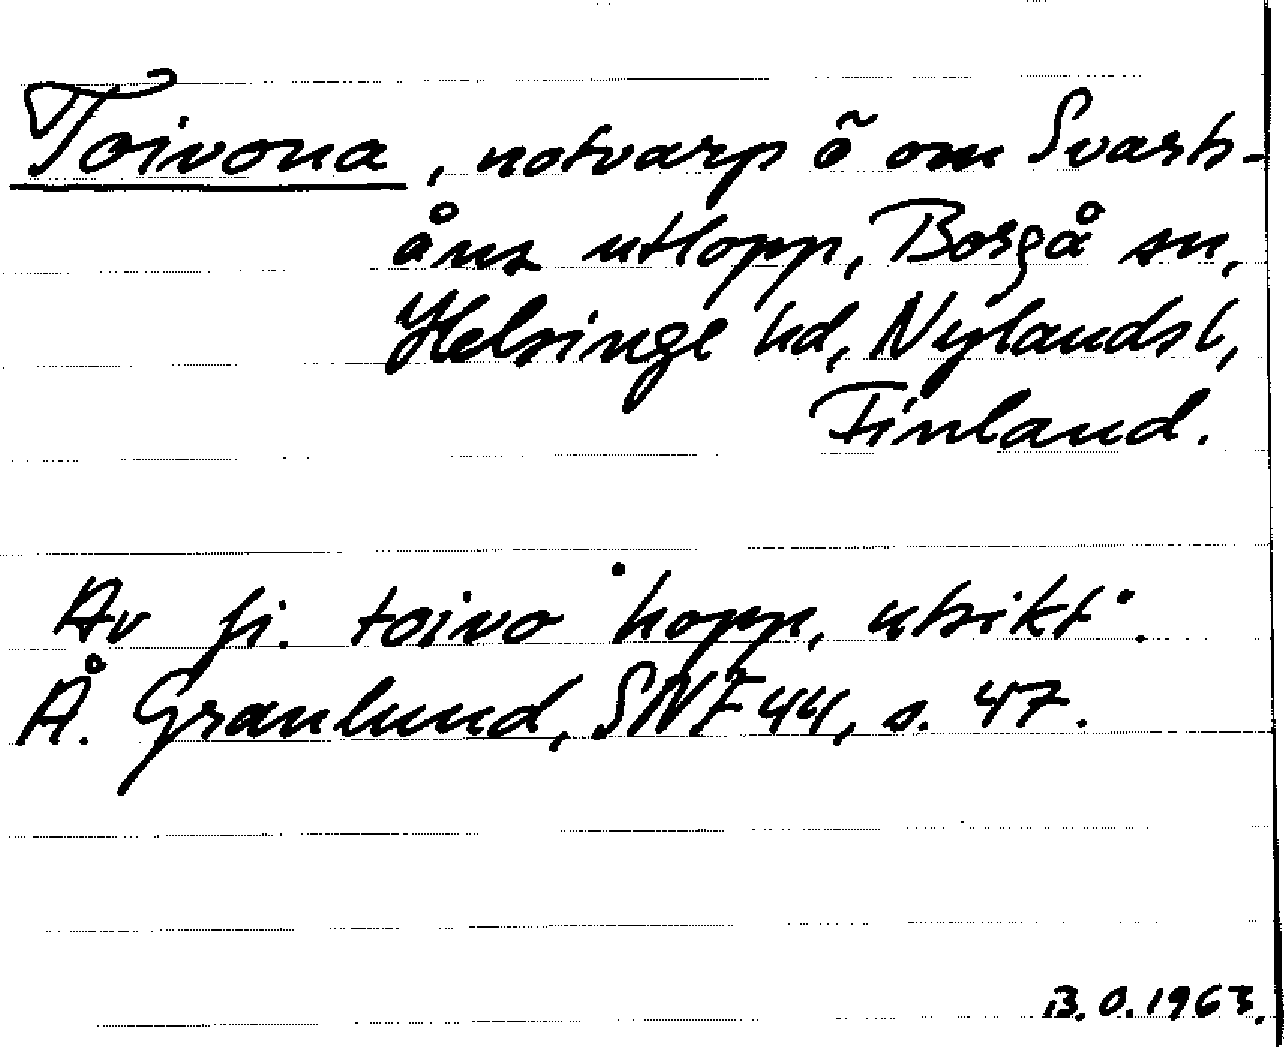 Toivona, notvarp ö om Svart-
åns utlopp, Borgå sn,
Helsinge hd, Nylands l,
Finland.
Av fi. toivo 'hopp, utsikt'.
Å. Granlund, SNF 44, s. 47.
B.O. 1963.